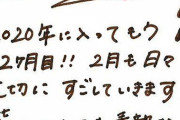 2020年に入ってもう
2ヶ月目!! 2月も日々
大切に すごしていきます